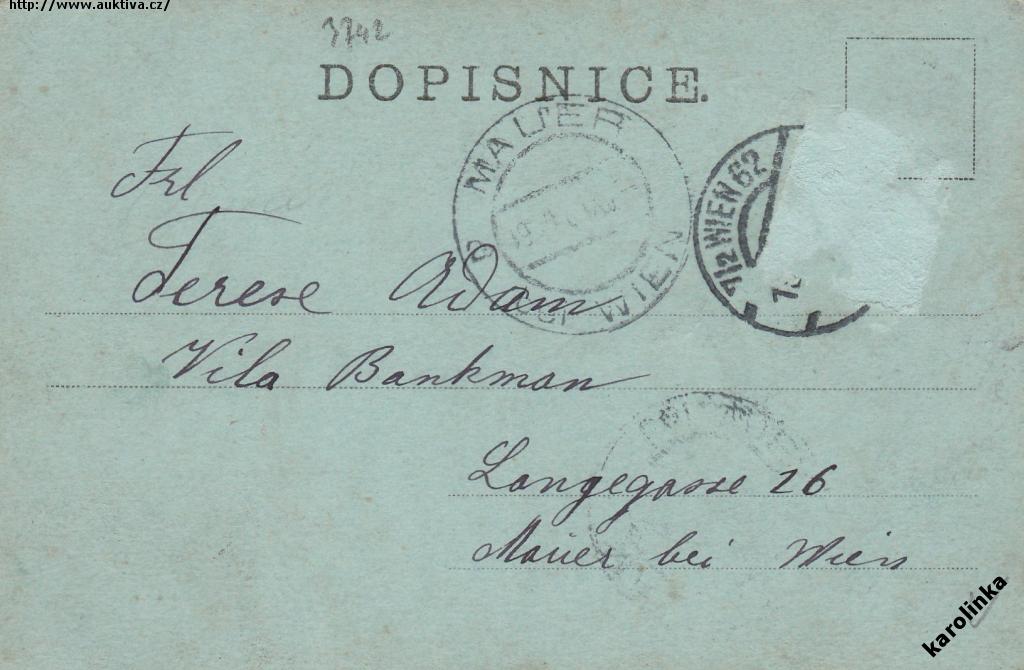 http://www.auktiva.cz/
3742
DOPISNICE.
MAUER
WIEN
1/2 WIEN 62
Frl
Terese Adam
Vila Bankman
Langegasse 26
Mauer bei Wien
karolinka